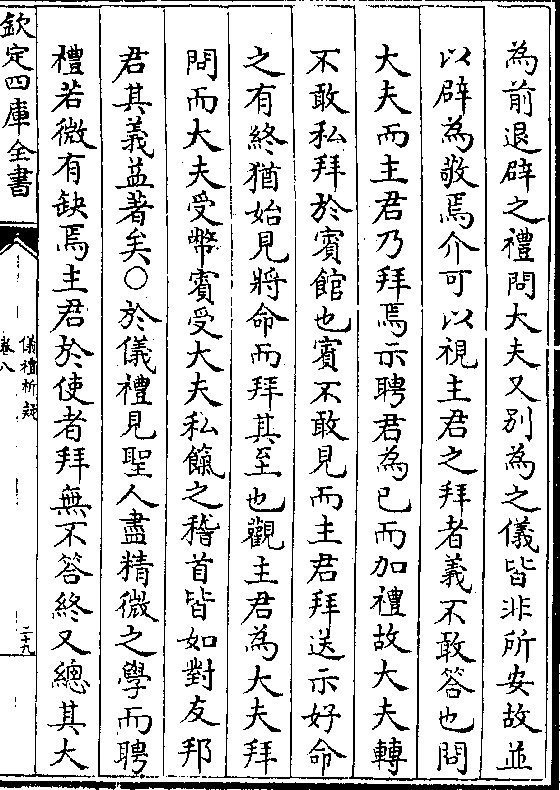 為前退辟之禮問大夫又別為之儀皆非所安故並
以辟為敬焉介可以視主君之拜者義不敢答也問
大夫而主君乃拜焉示聘君為已而加禮故大夫轉
不敢私拜於賓館也賓不敢見而主君拜送示好命
之有終猶始見將命而拜其至也觀主君為大夫拜
問而大夫受幣賓受大夫私餼之稽首皆如對友邦
君其義益著矣○於儀禮見聖人盡精微之學而聘
禮若微有缺焉主君於使者拜無不答終又總其大
欽定四庫全書
儀禮析疑
卷八
二十九